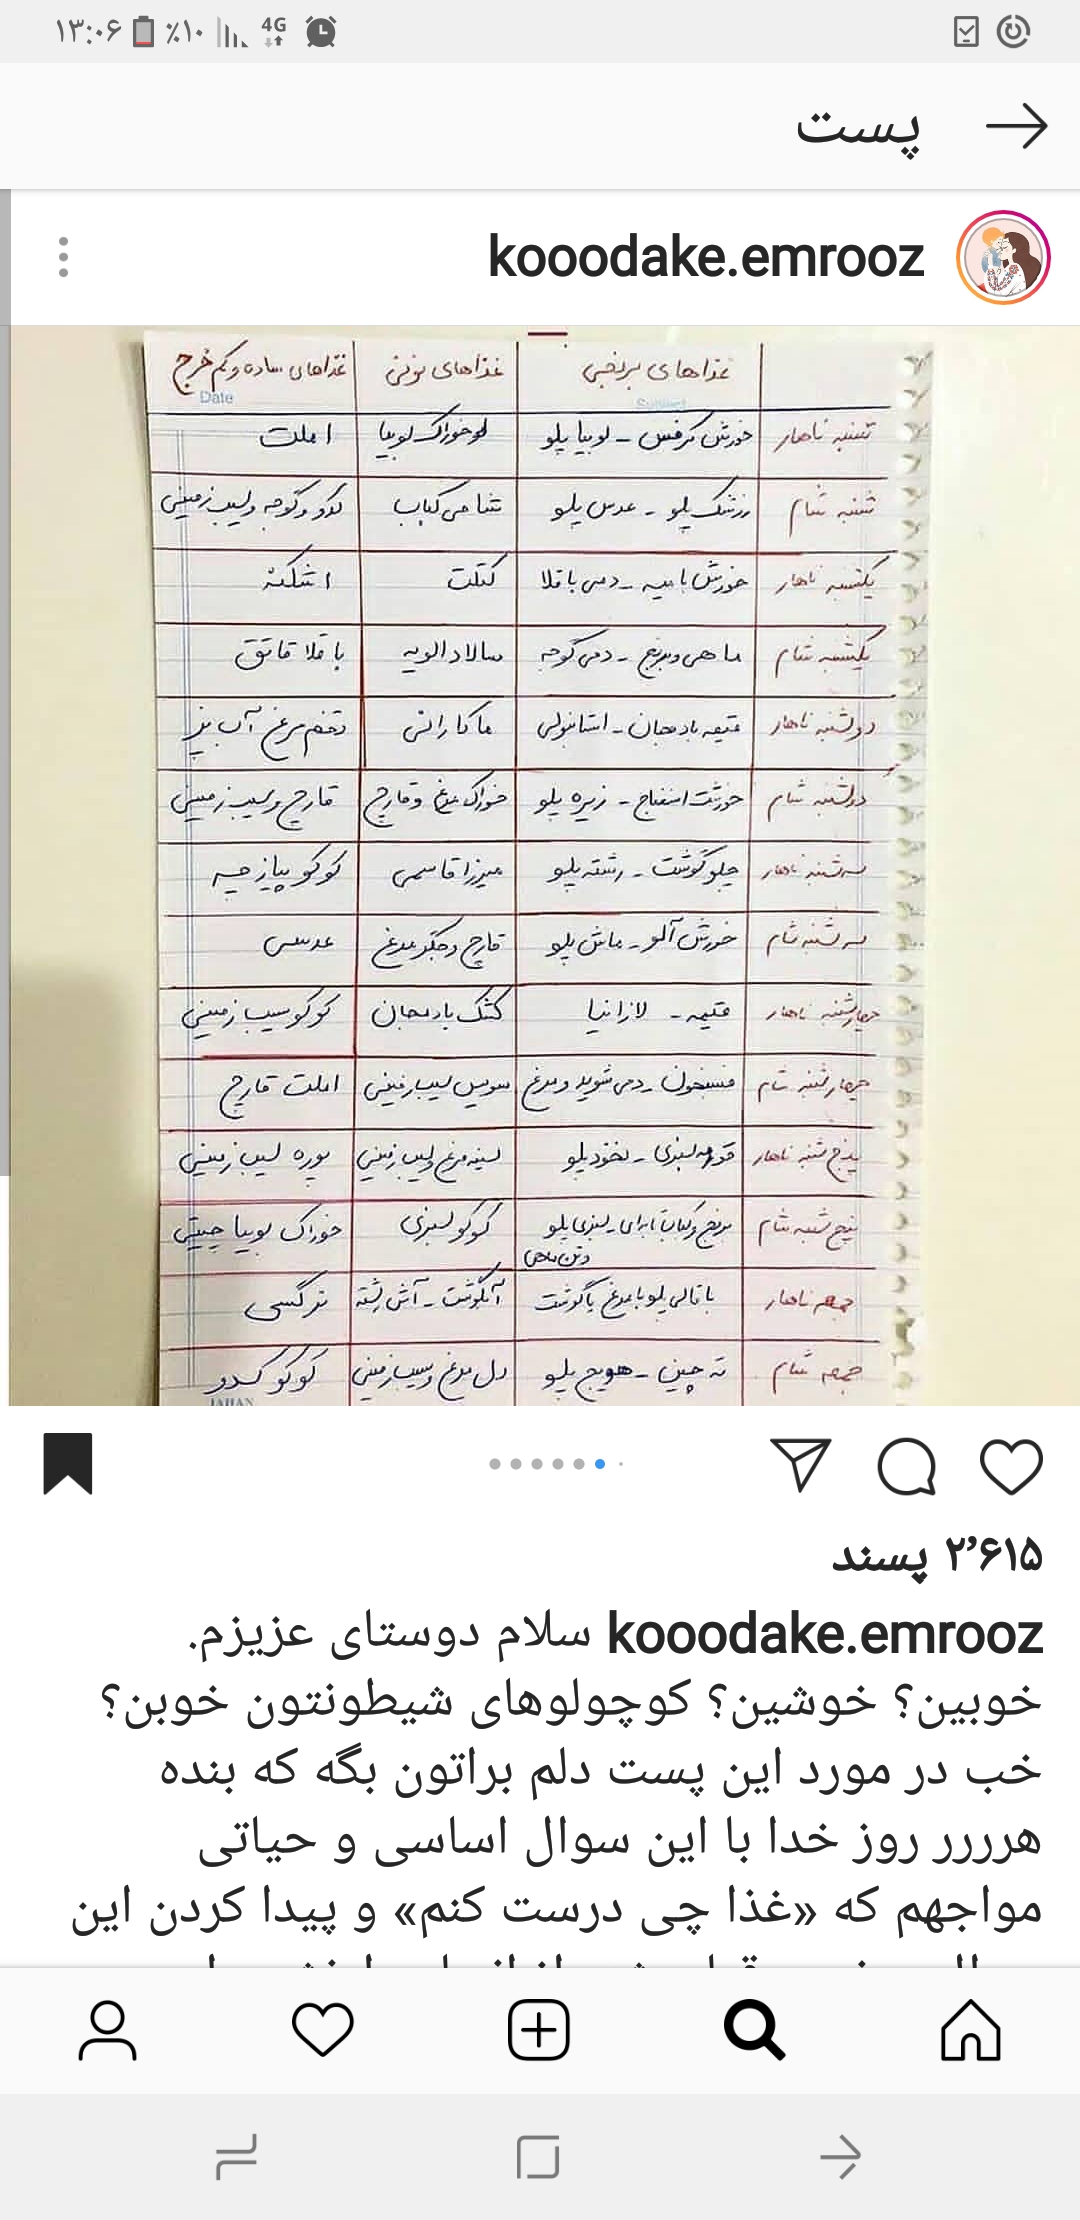 ۱۳:۰۶ ٪۱۰ 4G
پست
kooodake.emrooz
غذاهای برنجی غذاهای نونی غذاهای ساده و کم خرج
Date
Subject
شنبه ناهار خورش کرفس - لوبیا پلو خوراک لوبیا املت
شنبه شام زرشک پلو - عدس پلو شامی کباب کدو و گوجه و سیب زمینی
یکشنبه ناهار خورش بامیه - دمی باقلا کتلت اشکنه
یکشنبه شام ماهی و برنج - دمی گوجه سالاد الویه باقلا قاتق
دوشنبه ناهار قیمه بادمجان - استانبولی ماکارانی تخم مرغ آب پز
دوشنبه شام خورشت اسفناج - زیره پلو خوراک مرغ و قارچ قارچ و سیب زمینی
سه شنبه ناهار چلو گوشت - رشته پلو میرزا قاسمی کوکو پیازچه
سه شنبه شام خورش آلو - ماش پلو قارچ و جگر مرغ عدسی
چهارشنبه ناهار قیمه - لازانیا کشک بادمجان کوکو سیب زمینی
چهارشنبه شام فسنجون - دمی شوید و مرغ سوسیس سیب زمینی املت قارچ
پنج شنبه ناهار قورمه سبزی - نخود پلو سینه مرغ و سیب زمینی پوره سیب زمینی
پنج شنبه شام برنج و کباب تابه‌ای - سبزی پلو و تن ماهی کوکو سبزی خوراک لوبیا چیتی
جمعه ناهار باقالی پلو با مرغ یا گوشت آبگوشت - آش رشته نرگسی
جمعه شام ته چین - هویج پلو دل مرغ و سیب زمینی کوکو کدو
JAHAN
۲٬۶۱۵ پسند
kooodake.emrooz سلام دوستای عزیزم.
خوبین؟ خوشین؟ کوچولوهای شیطونتون خوبن؟
خب در مورد این پست دلم براتون بگه که بنده
هرررر روز خدا با این سوال اساسی و حیاتی
مواجهم که «غذا چی درست کنم» و پیدا کردن این